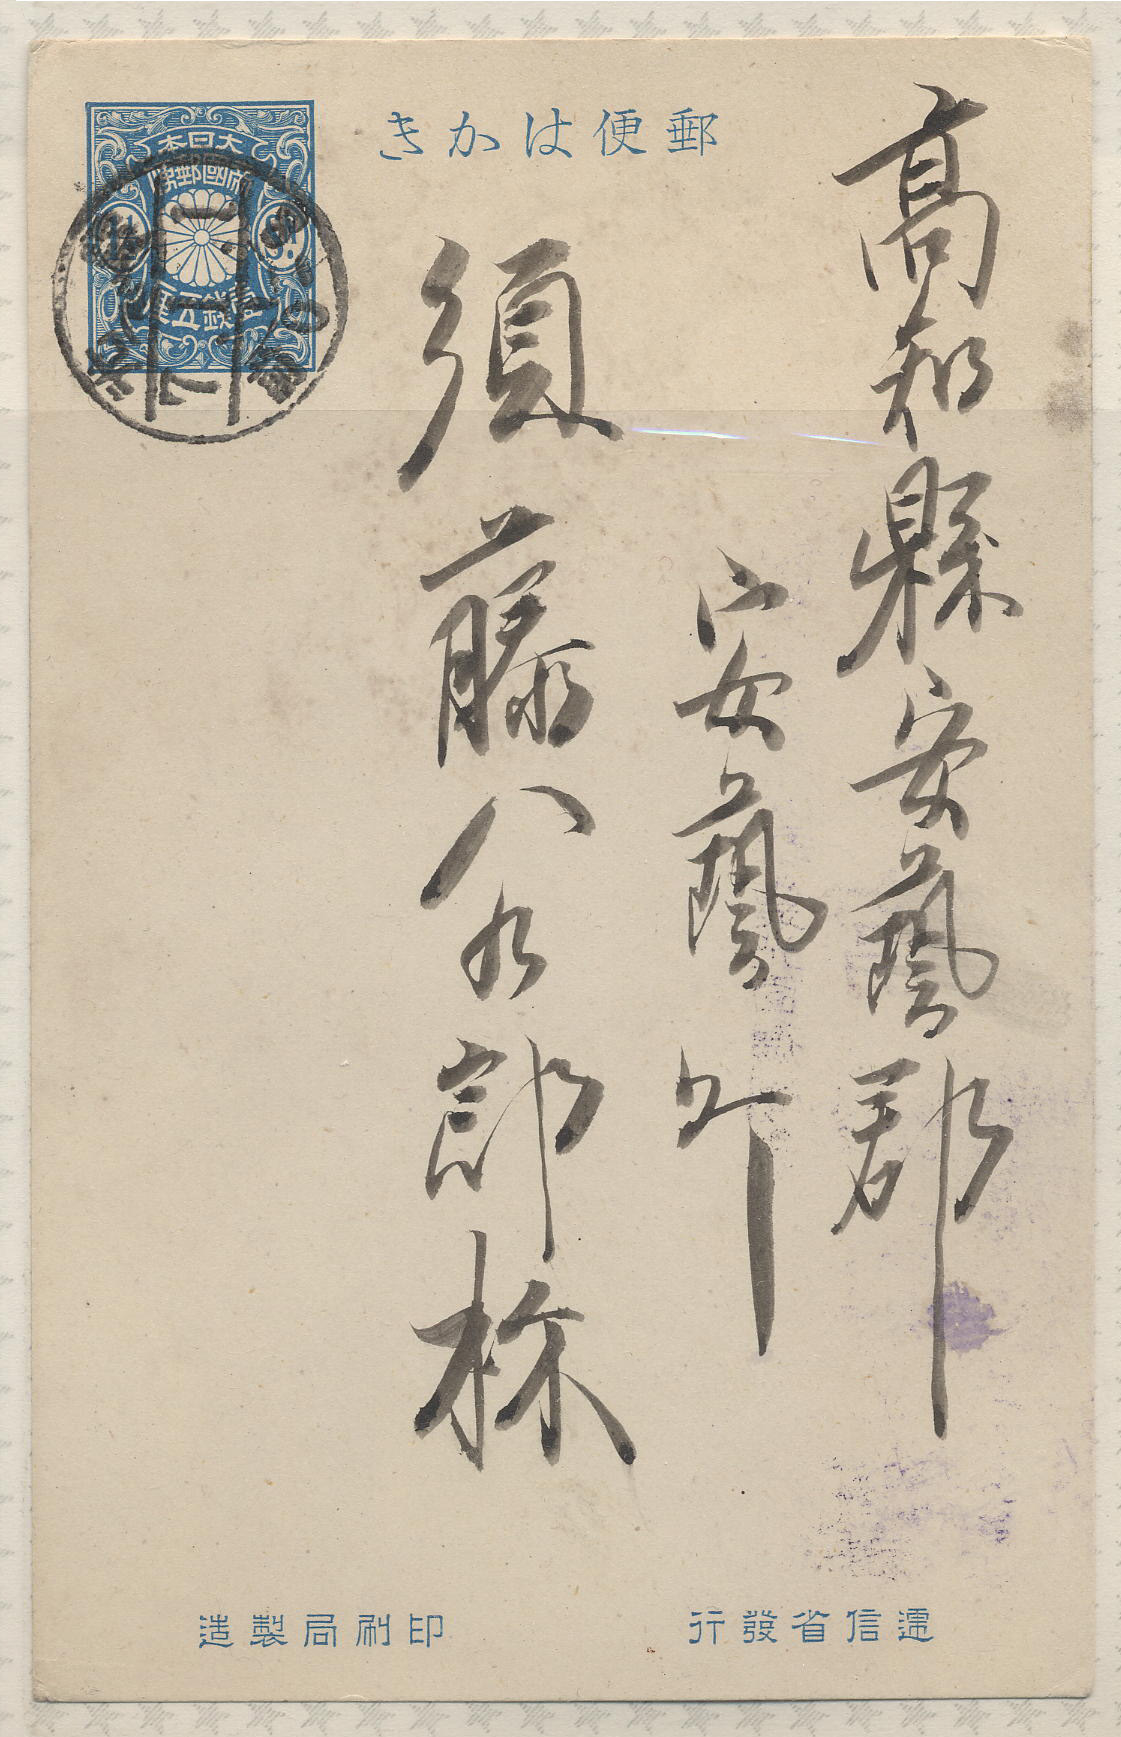 郵便はかき
大日本
帝國郵便
壹錢五厘
高知縣安藝郡
安藝町
須藤八郎様
遞信省發行
印刷局製造